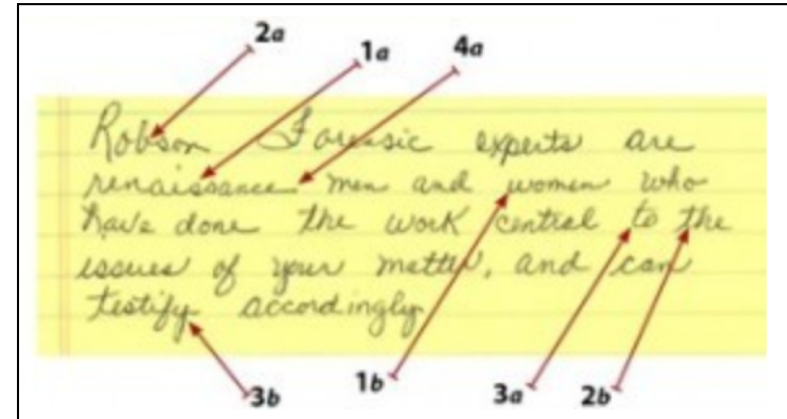 2a
1a
4a
Robson Forensic experts are
renaissance men and women who
have done the work central to the
issues of your matter, and can
testify accordingly
3b
1b
3a
2b